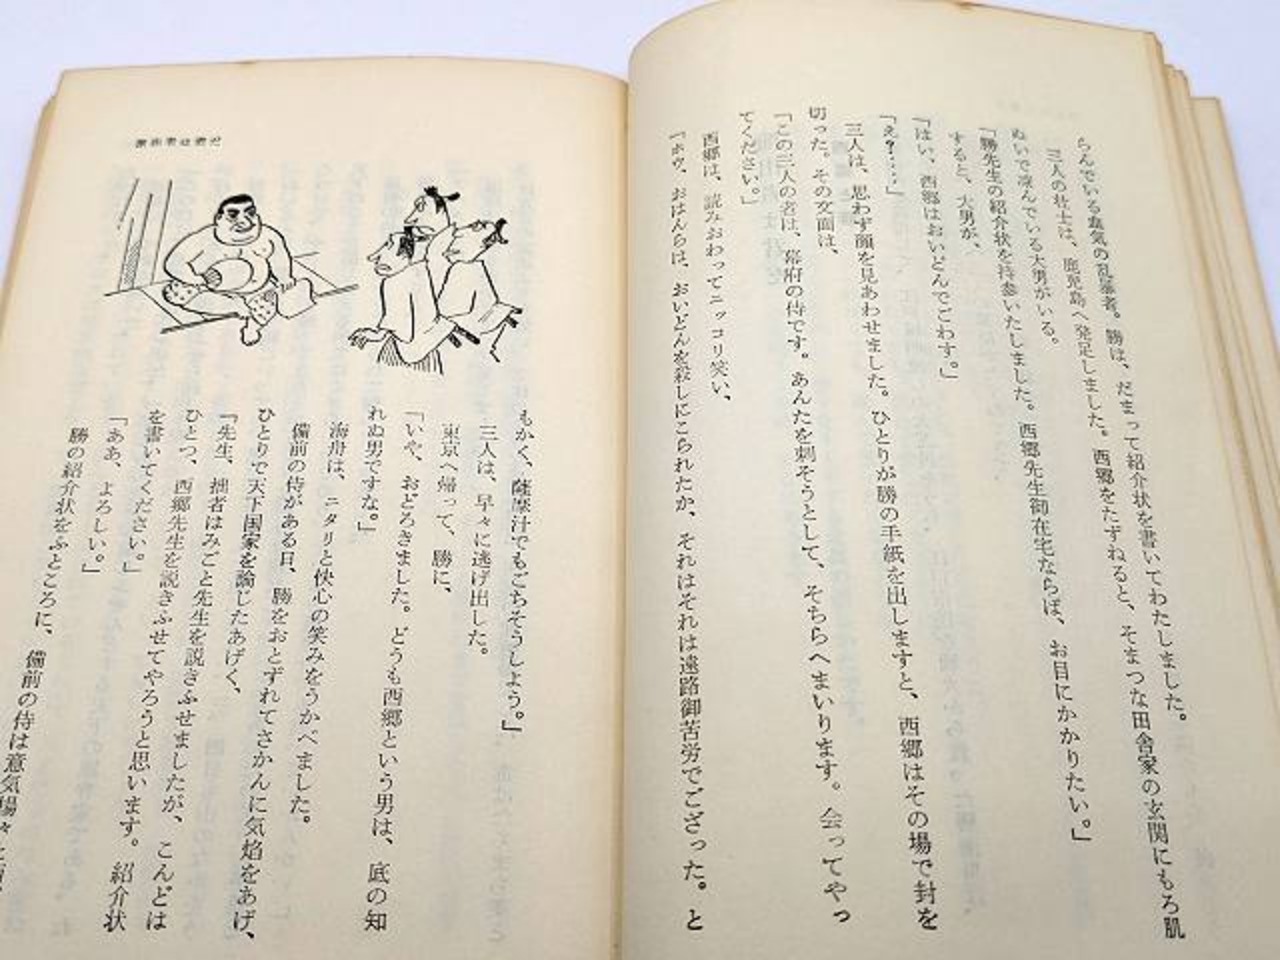 らんでいる蛮気の乱暴者。勝は、だまって紹介状を書いてわたしました。
三人の壮士は、鹿児島へ発足しました。西郷をたずねると、そまつな田舎家の玄関にもろ肌
ぬいで凉んでいる大男がいる。
「勝先生の紹介状を持参いたしました。西郷先生御在宅ならば、お目にかかりたい。」
すると、大男が、
「はい、西郷はおいどんでごわす。」
「え？……」
三人は、思わず顔を見あわせました。ひとりが勝の手紙を出しますと、西郷はその場で封を
切った。その文面は、
「この三人の者は、幕府の侍です。あんたを刺そうとして、そちらへまいります。会ってやっ
てください。」
西郷は、読みおわってニッコリ笑い、
「ホウ、おはんらは、おいどんを殺しにこられたか、それはそれは遠路御苦労でござった。と
もかく、薩摩汁でもごちそうしよう。」
三人は、早々に逃げ出した。
東京へ帰って、勝に、
「いや、おどろきました。どうも西郷という男は、底の知
れぬ男ですな。」
海舟は、ニタリと快心の笑みをうかべました。
備前の侍がある日、勝をおとずれてさかんに気焰をあげ、
ひとりで天下国家を論じたあげく、
「先生、拙者はみごと先生を説きふせましたが、こんどは
ひとつ、西郷先生を説きふせてやろうと思います。紹介状
を書いてください。」
「ああ、よろしい。」
勝の紹介状をふところに、備前の侍は意気揚々と